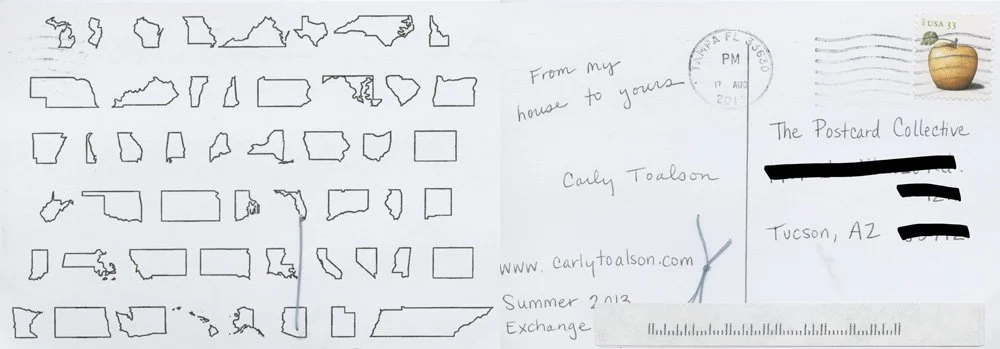 From my
house to yours
Carly Toalson
www.carlytoalson.com
Summer 2013
Exchange
TAMPA FL 33630
PM
17 AUG
2013
USA 33
The Postcard Collective
Tucson, AZ